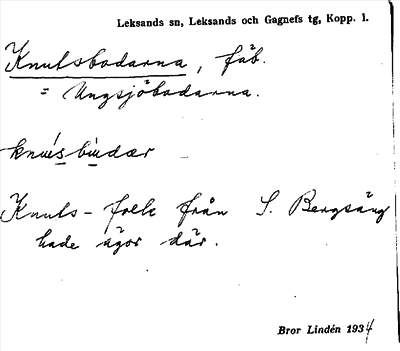 Leksands sn, Leksands och Gagnefs tg, Kopp. l.
Knutsbodarna, fäb.
= Ungsjöbodarna.
Knuts-folk från S. Bergsäng
hade ägor där.
Bror Lindén 1934